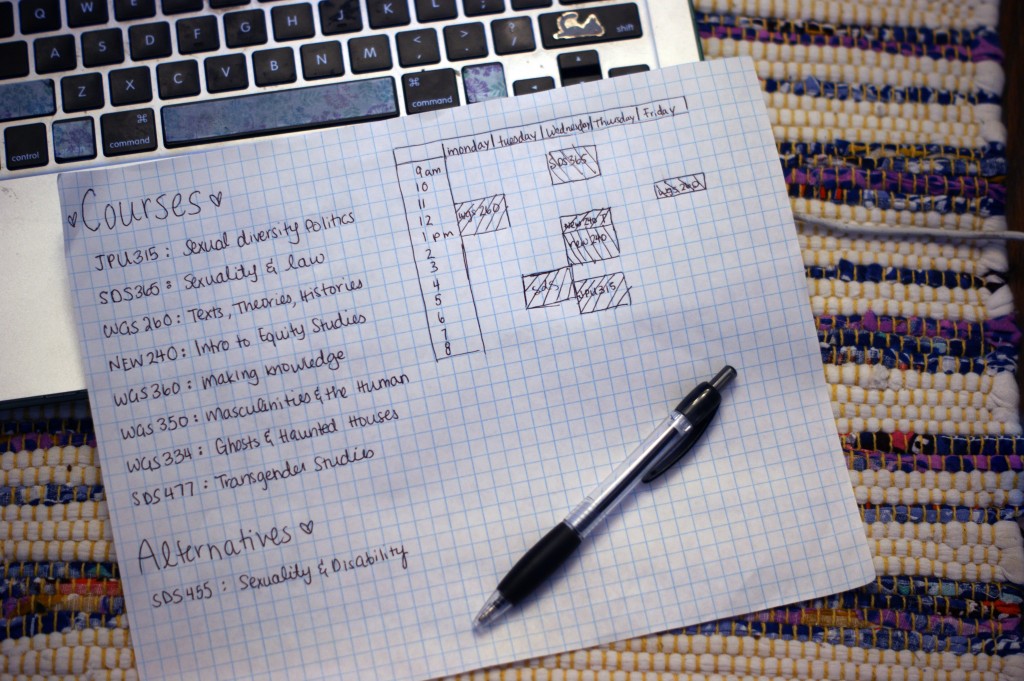 Q W E R T Y U I O P
A S D F G H J K L ; shift
Z X C V B N M < , > . ? /
control ⌘ command ⌘ command
♥ Courses ♥
JPU315: Sexual diversity Politics
SDS365: Sexuality & law
WGS260: Texts, Theories, Histories
NEW240: Intro to Equity Studies
WGS360: Making knowledge
WGS350: Masculinities & the Human
WGS334: Ghosts & Haunted Houses
SDS477: Transgender Studies
Alternatives ♡
SDS455: Sexuality & Disability
monday tuesday wednesday Thursday Friday
9 am
10
11
12
1 pm
2
3
4
5
6
7
8
SDS365
WGS 260
WGS 260
New 240
new 240
SDS
JPU315